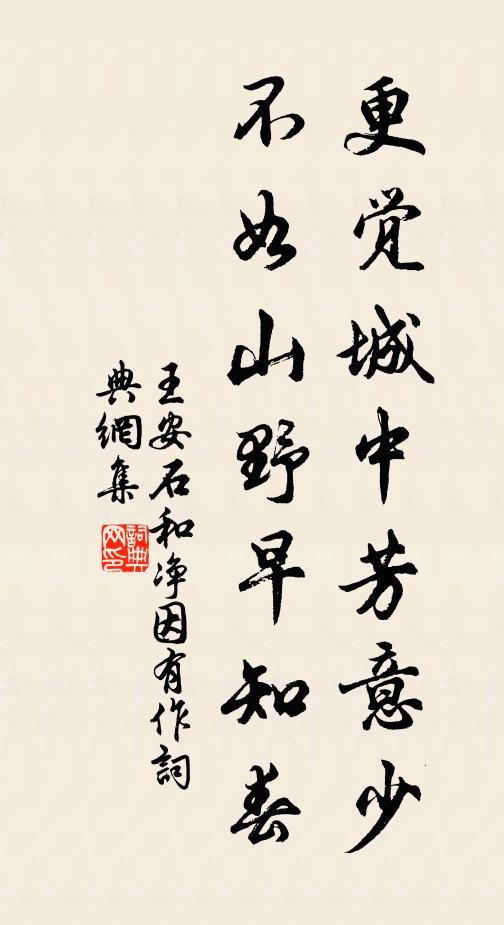 更觉城中芳意少
不如山野早知春
王安石和净因有作詞
典網集
詞典
网印